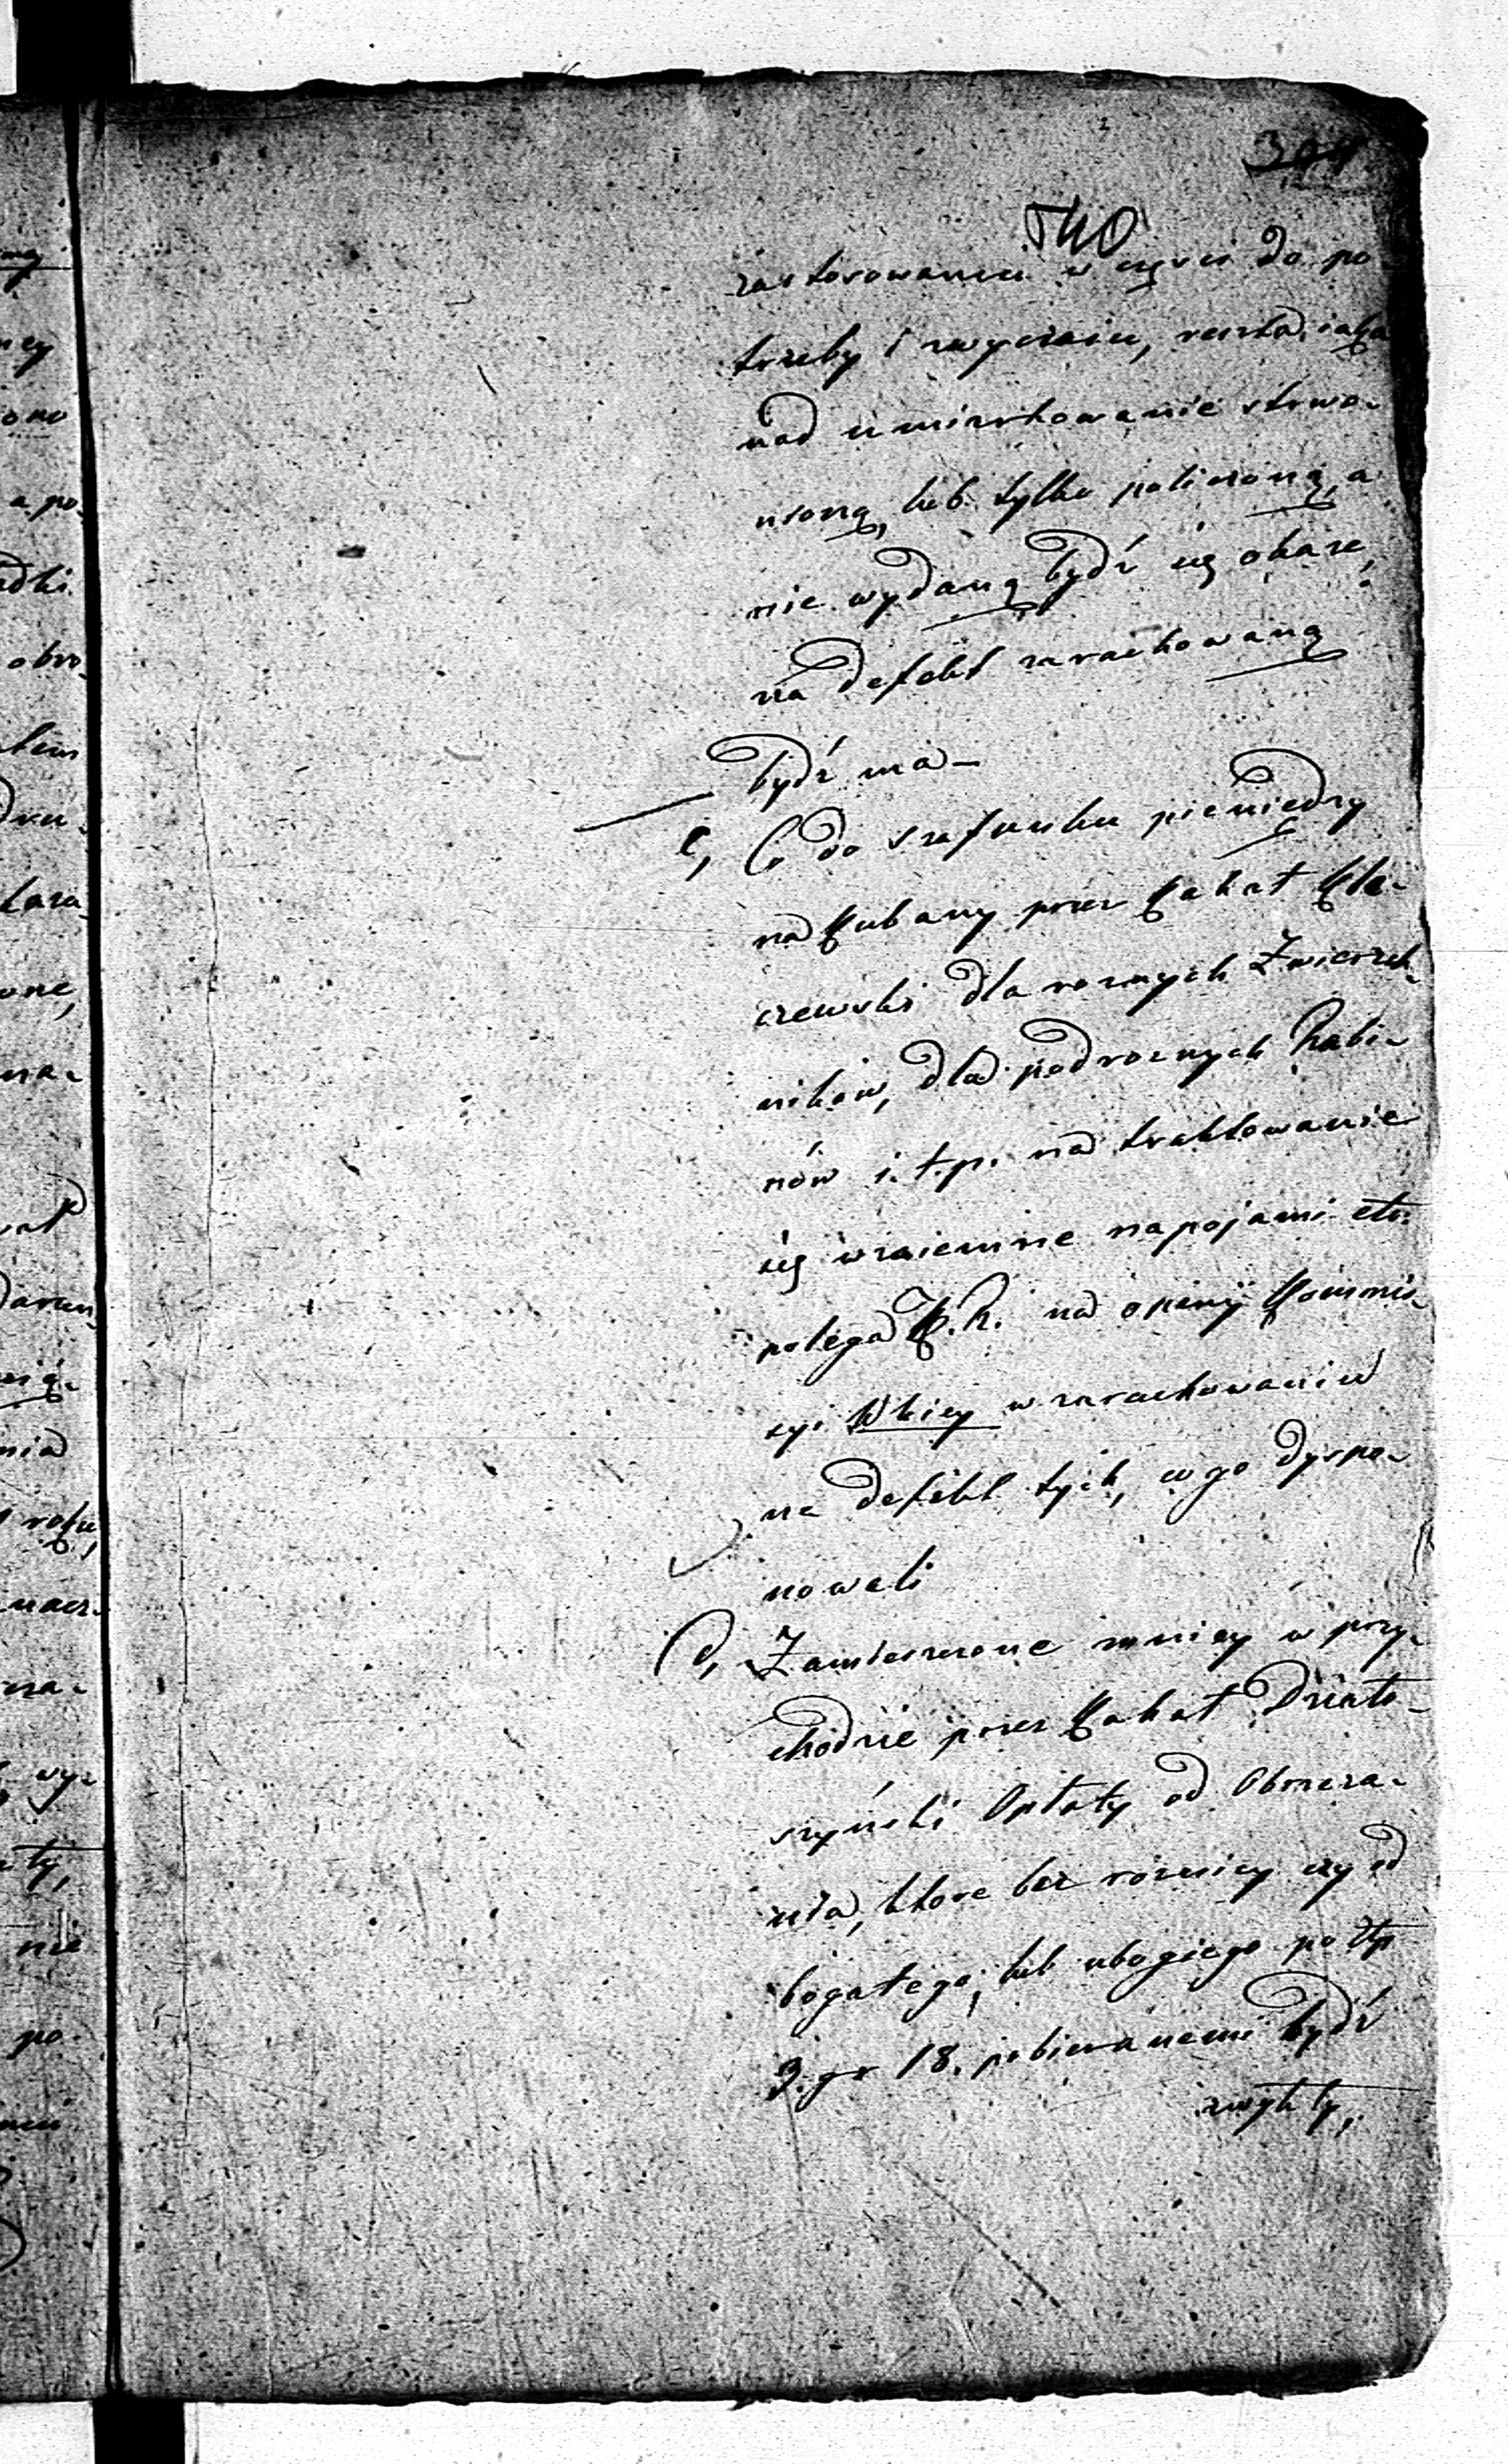 540
zastosowaniu w części do po-
trzeby i zwyczaiu, reszta, iako
nad umiarkowanie strwo-
nioną, lub tylko policzoną, a
nie wydaną bydź się okaże,
na defekt zarachowaną
bydź ma —
c, Co do szafunku pieniędzy
na Kubany przez Kahał Kle-
czewski dla roznych Zwierzch-
ników, dla podroznych Rabi-
nów i. t. p. na traktowanie
się wzaiemne napojami etc.
polega K. R. na opinij Kommis-
syi Wkiey w zarachowaniu
na defekt tych, co go dyspo-
nowali
d, Zamieszczone mniey w przy-
chodzie przez Kahał Działo-
szyński Opłaty od Obrzeza-
nia, ktore bez rożnicy czy od
bogatego, lub ubogiego po złp
3. gr 18. pobieranemi bydź
zwykły,